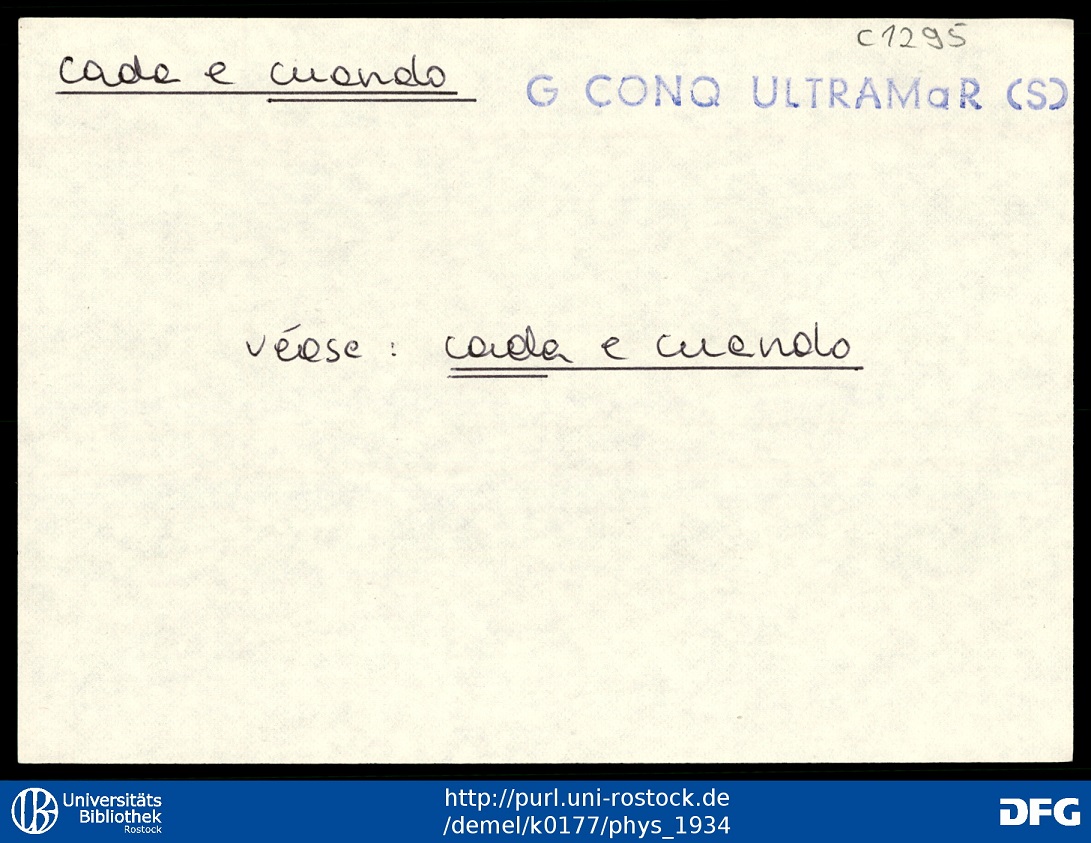 c1295
cada e cuando G CONQ ULTRAMaR (S)
véase : cada e cuando
Universitäts
Bibliothek
Rostock
http://purl.uni-rostock.de
/demel/k0177/phys_1934
DFG